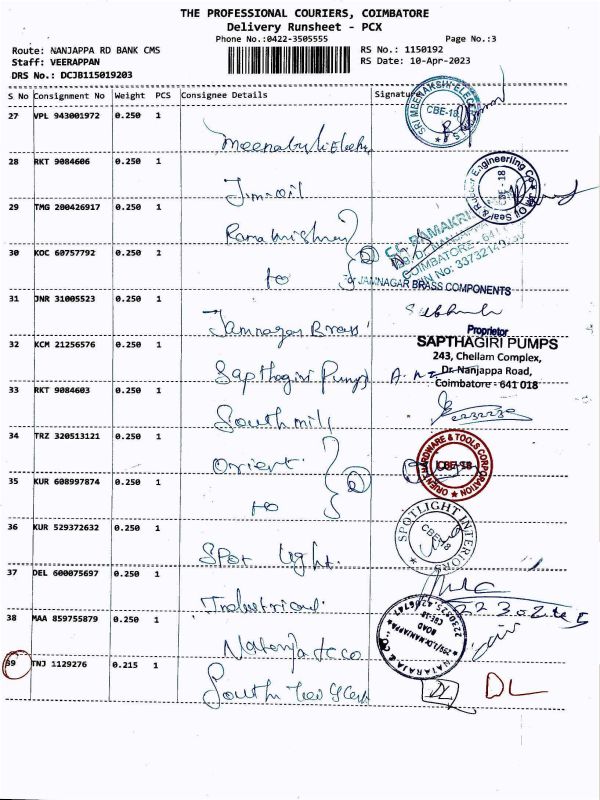 THE PROFESSIONAL COURIERS, COIMBATORE
Delivery Runsheet - PCX
Phone No.:0422-3505555 Page No.:3
Route: NANJAPPA RD BANK CMS RS No.: 1150192
Staff: VEERAPPAN RS Date: 10-Apr-2023
DRS No.: DCJB115019203
S No Consignment No Weight PCS Consignee Details Signature
27 VPL 943001972 0.250 1
SRI MEENAKSHI ELEC CBE-18
28 RKT 9084606 0.250 1
Oil Seal & Rubber Engineering Co CBE - 18
29 TMG 200426917 0.250 1
Ramakrishna
30 KOC 60757792 0.250 1
to
COIMBATORE - 641
For JAMNAGAR BRASS COMPONENTS
31 JNR 31005523 0.250 1
Jamnagar Brass
Proprietor
32 KCM 21256576 0.250 1
SAPTHAGIRI PUMPS
243, Chellam Complex,
Dr. Nanjappa Road,
Coimbatore - 641 018
Sapthagiri Pumps
33 RKT 9084603 0.250 1
South mill
34 TRZ 320513121 0.250 1
Orient
ORIENT HARDWARE & TOOLS CORPORATION CBE-18
35 KUR 608997874 0.250 1
to
36 KUR 529372632 0.250 1
SPOTLIGHT INTERIORS CBE-18
Spot light.
37 DEL 600075697 0.250 1
Industrial
38 MAA 859755879 0.250 1
NATARAJA & CO
259/1, Dr. NANJAPPA ROAD
CBE-18
39 TNJ 1129276 0.215 1
South
DL DL